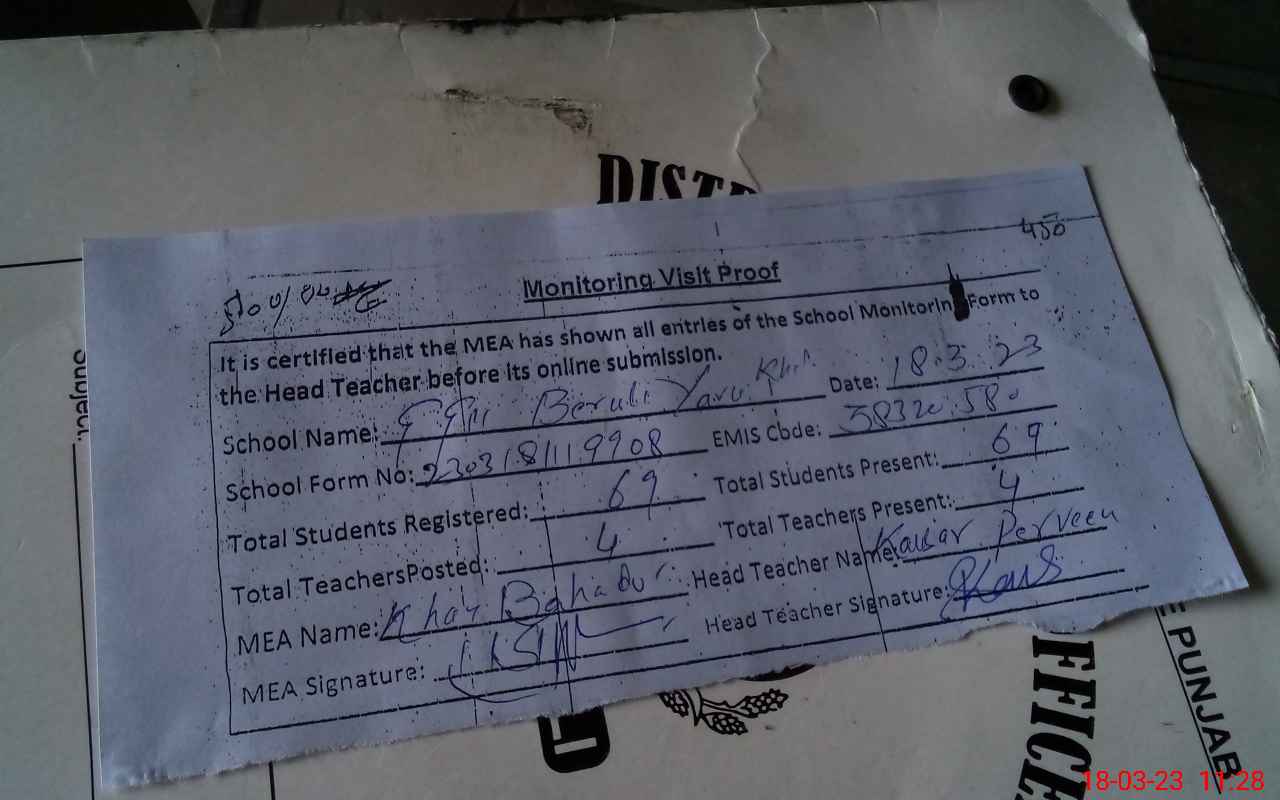 DISTR
450
Monitoring Visit Proof
It is certified that the MEA has shown all entries of the School Monitorin Form to
the Head Teacher before its online submission.
School Name: Date: 18.3.23
School Form No: 230318/119908 EMIS Code: 38320580
Total Students Registered: 69 Total Students Present: 69
Total TeachersPosted: 4 Total Teachers Present: 4
MEA Name: Khar Bahadur Head Teacher Name: Kausar Perveen
MEA Signature: Head Teacher Signature:
Subject:
FFICE
E PUNJAB
18-03-23 11:28